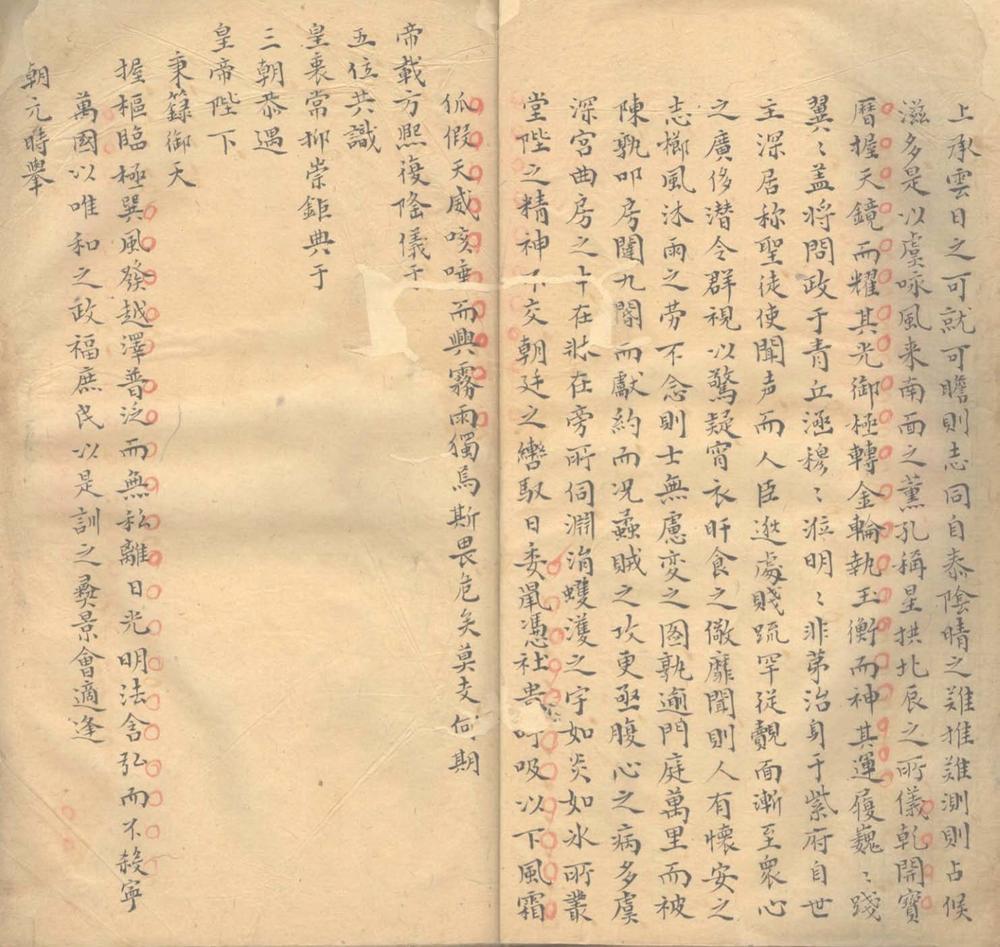 上承雲日之可就可瞻則志同自泰陰晴之難推難測則占候
滋多是以虞咏風来南面之薰孔稱星拱北辰之所儀乾開寶
曆握天鏡而耀其光御極轉金輪執玉衡而神其運履巍〻踐
翼〻盖将問政于青丘逐穆〻涖明〻非苐治身于紫府自世
主深居称聖徒使聞声而人臣逖處賤疏罕從覿面漸至衆心
之廣侈潜令群視以驚疑宵衣旰食之儆靡聞則人有懷安之
志櫛風沐雨之劳不念則士無慮变之圖孰逾門庭萬里而被
陳孰叩房闥九閽而獻約而况蟊賊之攻更亟腹心之病多虞
深宫曲房之中在牀在旁所伺淵涓蠖濩之宇如炎如冰所叢
堂陛之精神不交朝廷之轡馭日委鼠憑社晝叮吸以下風霜
狐假天威咳唾而興霧雨獨焉斯畏危矣莫支何期
帝載方熙復隆儀于
五位共識
皇衷常抑崇鉅典于
三朝恭遇
皇帝陛下
秉籙御天
握樞臨極巽風發越澤普泛而無私離日光明法含弘而不殺寧
萬國以唯和之政福庶民以是訓之彝景會適逢
朝元時舉